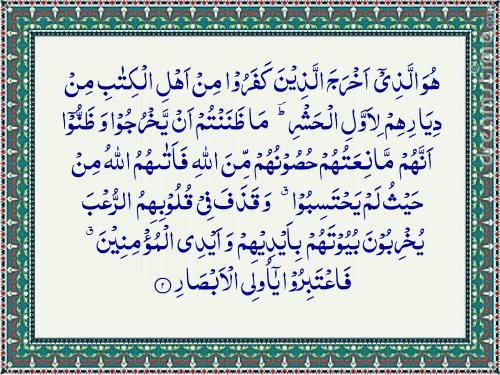 هُوَ الَّذِیْۤ اَخْرَجَ الَّذِیْنَ كَفَرُوْا مِنْ اَهْلِ الْكِتٰبِ مِنْ
دِیَارِهِمْ لِاَوَّلِ الْحَشْرِ ؕ مَا ظَنَنْتُمْ اَنْ یَّخْرُجُوْا وَ ظَنُّوْۤا
اَنَّهُمْ مَّانِعَتُهُمْ حُصُوْنُهُمْ مِّنَ اللّٰهِ فَاَتٰىهُمُ اللّٰهُ مِنْ
حَیْثُ لَمْ یَحْتَسِبُوْا ۗ وَ قَذَفَ فِیْ قُلُوْبِهِمُ الرُّعْبَ
یُخْرِبُوْنَ بُیُوْتَهُمْ بِاَیْدِیْهِمْ وَ اَیْدِی الْمُؤْمِنِیْنَ ۗ
فَاعْتَبِرُوْا یٰۤاُولِی الْاَبْصَارِ ﴿۲﴾